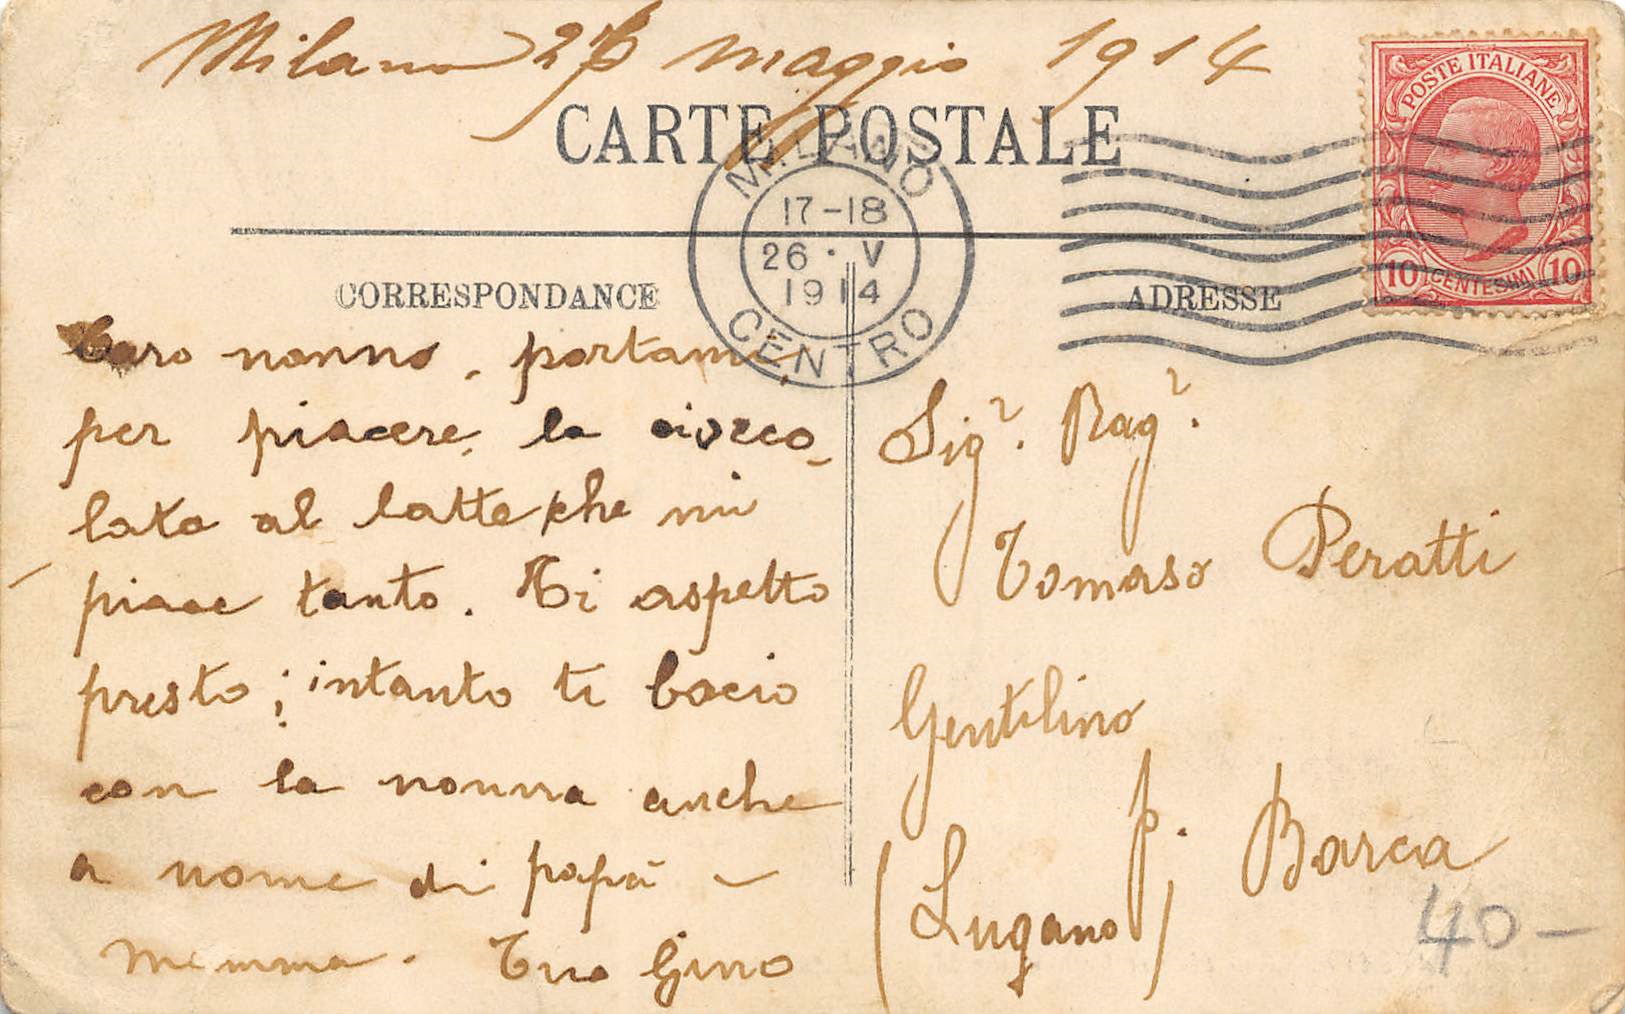 Milano 26 maggio 1914
CARTE POSTALE
POSTE ITALIANE
10 CENTESIMI 10
MILANO
17-18
26 · V
1914
CENTRO
CORRESPONDANCE
ADRESSE
Caro nonno, portami,
per piacere, la ciocco-
lata al latte che mi
piace tanto. Ti aspetto
presto; intanto ti bacio
con la nonna anche
a nome di papà -
mamma. Tuo Gino
Sigr. Ragr.
Tomaso Peratti
Gentilino
p. Barca
(Lugano)
40-